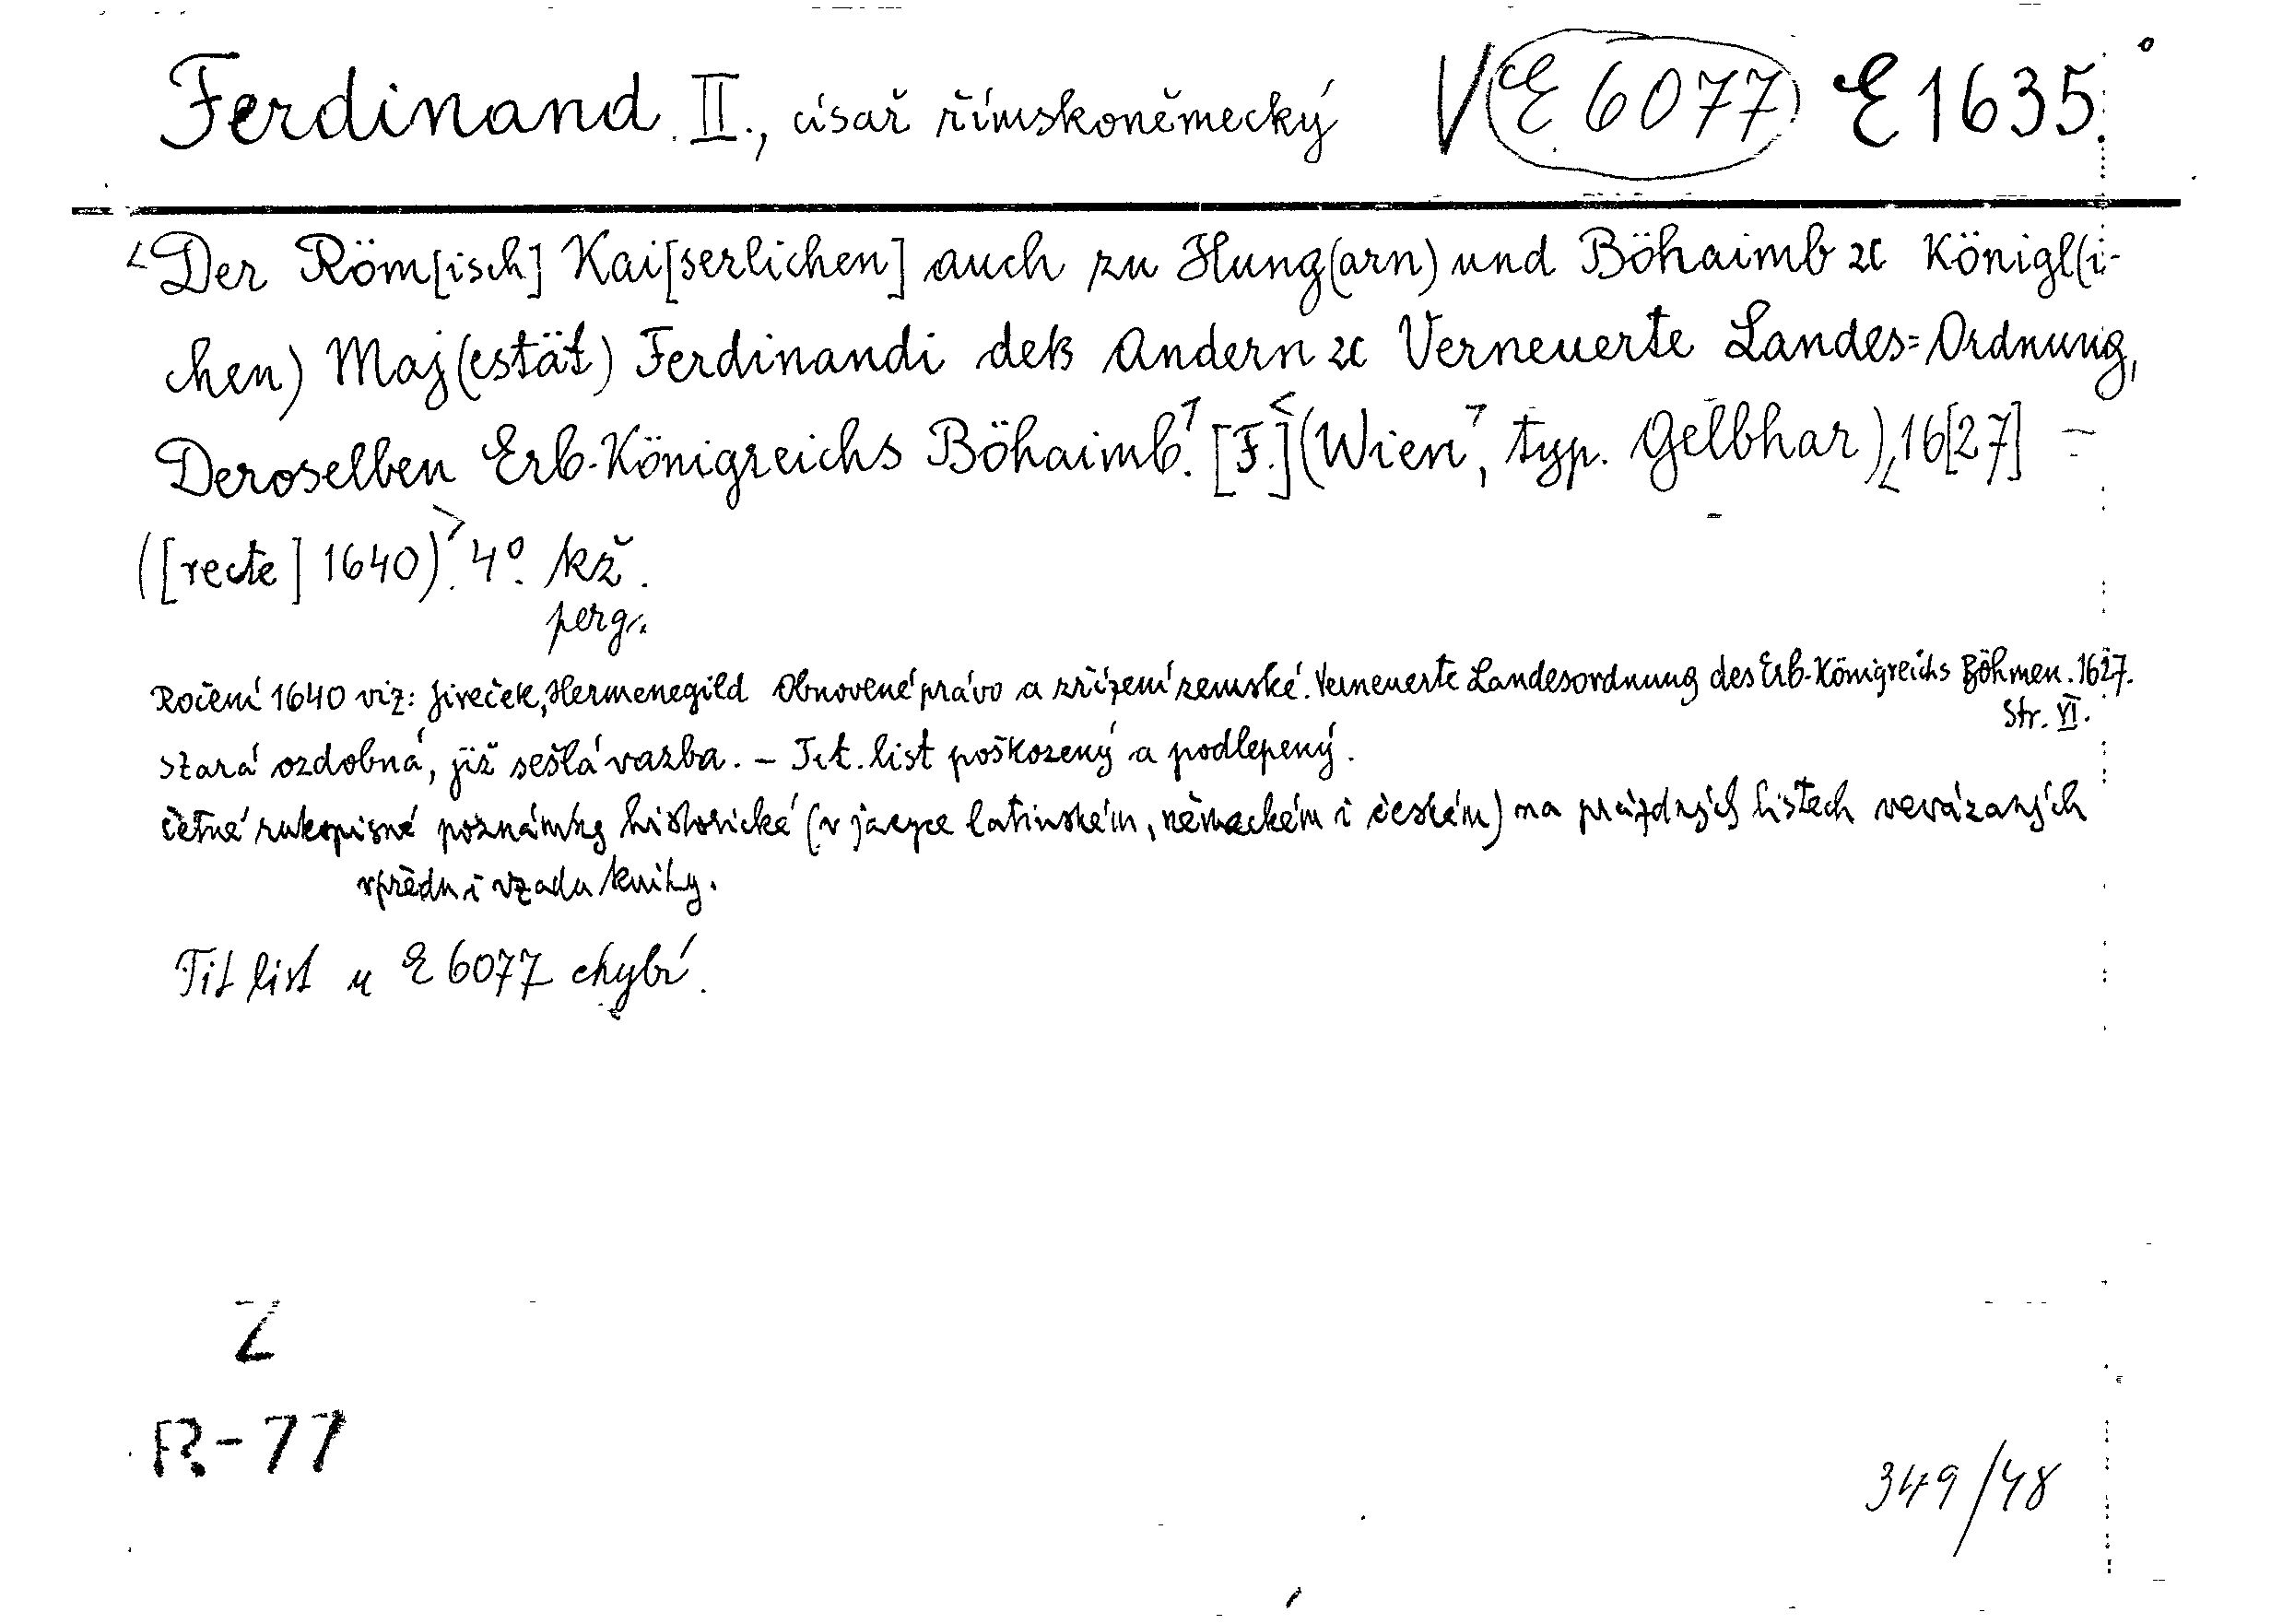 Ferdinand II., císař římskoněmecký V E 6077 E 1635.
<Der Röm[isch] Kai[serlichen] auch zu Hung(arn) und Böhaimb ꝛc Königl(i-
chen) Maj(estät) Ferdinandi deß Andern ꝛc Verneuerte Landes=Ordnung,
Deroselben Erb-Königreichs Böhaimb. [F.] (Wien, typ. Gelbhar), 16[27] –
([recte] 1640). 4°. kž.
perg.
Ročení 1640 viz: Jireček, Hermenegild Obnovené právo a zřízení zemské. Verneuerte Landesordnung des Erb-Königreichs Böhmen. 1627.
Str. VI.
Stará ozdobná, již sešlá vazba. – Tit. list poškozený a podlepený.
četné rukopisné poznámky historické (v jazyce latinském, německém i českém) na prázdných listech vevázaných
vpředu i vzadu knihy.
Tit list u E 6077 chybí.
Z
R-77
349/48